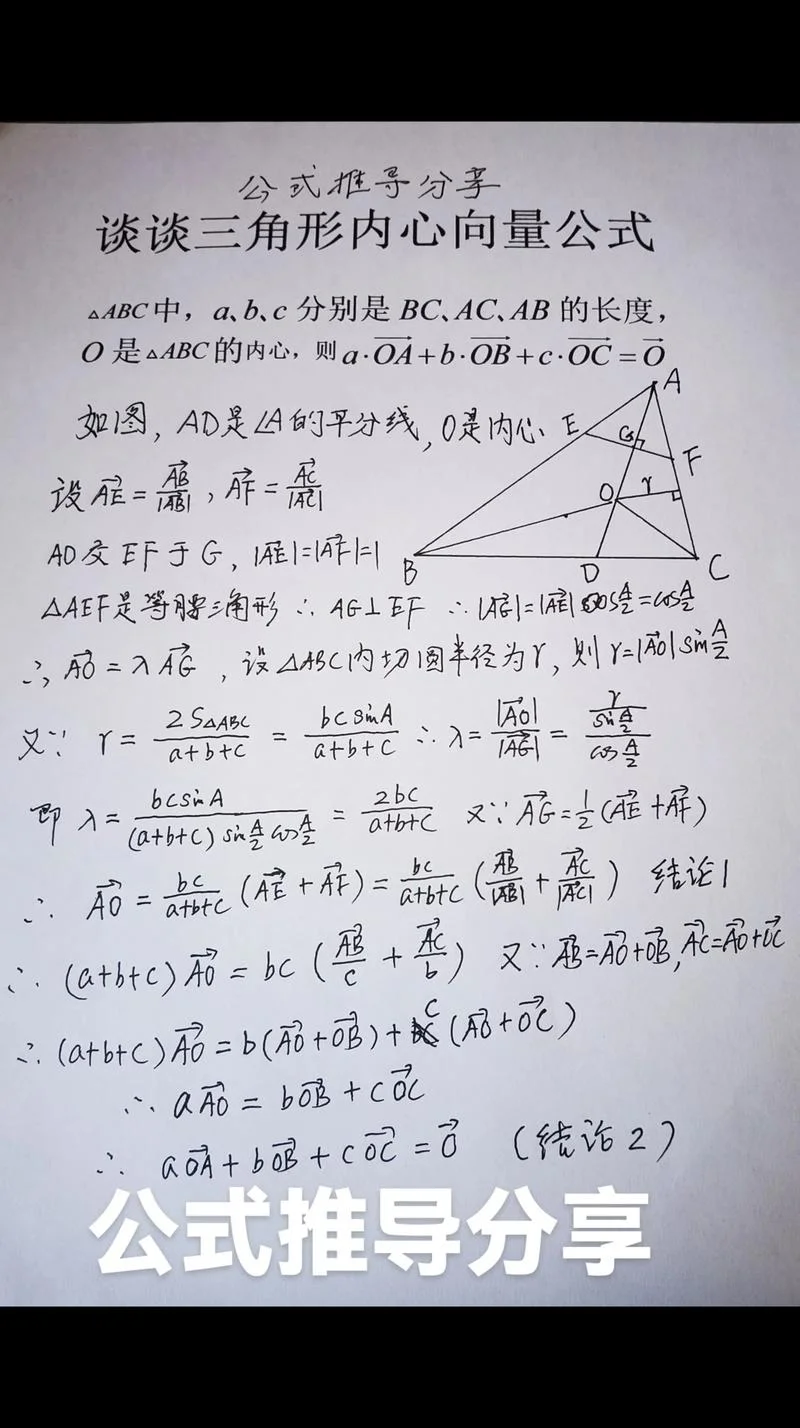 公式推导分享
谈谈三角形内心向量公式
△ABC中，a、b、c 分别是 BC、AC、AB 的长度，
O 是△ABC的内心，则 a·\overrightarrow{OA}+b·\overrightarrow{OB}+c·\overrightarrow{OC}=\overrightarrow{O}
如图，AD是∠A的平分线，O是内心
设 \overrightarrow{AE}=\frac{\overrightarrow{AB}}{|\overrightarrow{AB}|}，\overrightarrow{AF}=\frac{\overrightarrow{AC}}{|\overrightarrow{AC}|}
AD交EF于G，|\overrightarrow{AE}|=|\overrightarrow{AF}|=1
A
E
G
F
O
r
B
D
C
△AEF是等腰三角形 ∴ AG⊥EF ∴ |\overrightarrow{AG}|=|\overrightarrow{AE}|cos\frac{A}{2}=cos\frac{A}{2}
∴ \overrightarrow{AO}=λ\overrightarrow{AG}，设△ABC内切圆半径为r，则 r=|\overrightarrow{AO}|sin\frac{A}{2}
又∵ r=\frac{2S_{△ABC}}{a+b+c}=\frac{bcsinA}{a+b+c} ∴ λ=\frac{|\overrightarrow{AO}|}{|\overrightarrow{AG}|}=\frac{\frac{r}{sin\frac{A}{2}}}{cos\frac{A}{2}}
即 λ=\frac{bcsinA}{(a+b+c)sin\frac{A}{2}cos\frac{A}{2}}=\frac{2bc}{a+b+c} 又∵ \overrightarrow{AG}=\frac{1}{2}(\overrightarrow{AE}+\overrightarrow{AF})
∴ \overrightarrow{AO}=\frac{bc}{a+b+c}(\overrightarrow{AE}+\overrightarrow{AF})=\frac{bc}{a+b+c}(\frac{\overrightarrow{AB}}{|\overrightarrow{AB}|}+\frac{\overrightarrow{AC}}{|\overrightarrow{AC}|}) 结论1
∴ (a+b+c)\overrightarrow{AO}=bc(\frac{\overrightarrow{AB}}{c}+\frac{\overrightarrow{AC}}{b}) 又∵ \overrightarrow{AB}=\overrightarrow{AO}+\overrightarrow{OB}, \overrightarrow{AC}=\overrightarrow{AO}+\overrightarrow{OC}
∴ (a+b+c)\overrightarrow{AO}=b(\overrightarrow{AO}+\overrightarrow{OB})+c(\overrightarrow{AO}+\overrightarrow{OC})
∴ a\overrightarrow{AO}=b\overrightarrow{OB}+c\overrightarrow{OC}
∴ a\overrightarrow{OA}+b\overrightarrow{OB}+c\overrightarrow{OC}=\overrightarrow{O} （结论2）
公式推导分享